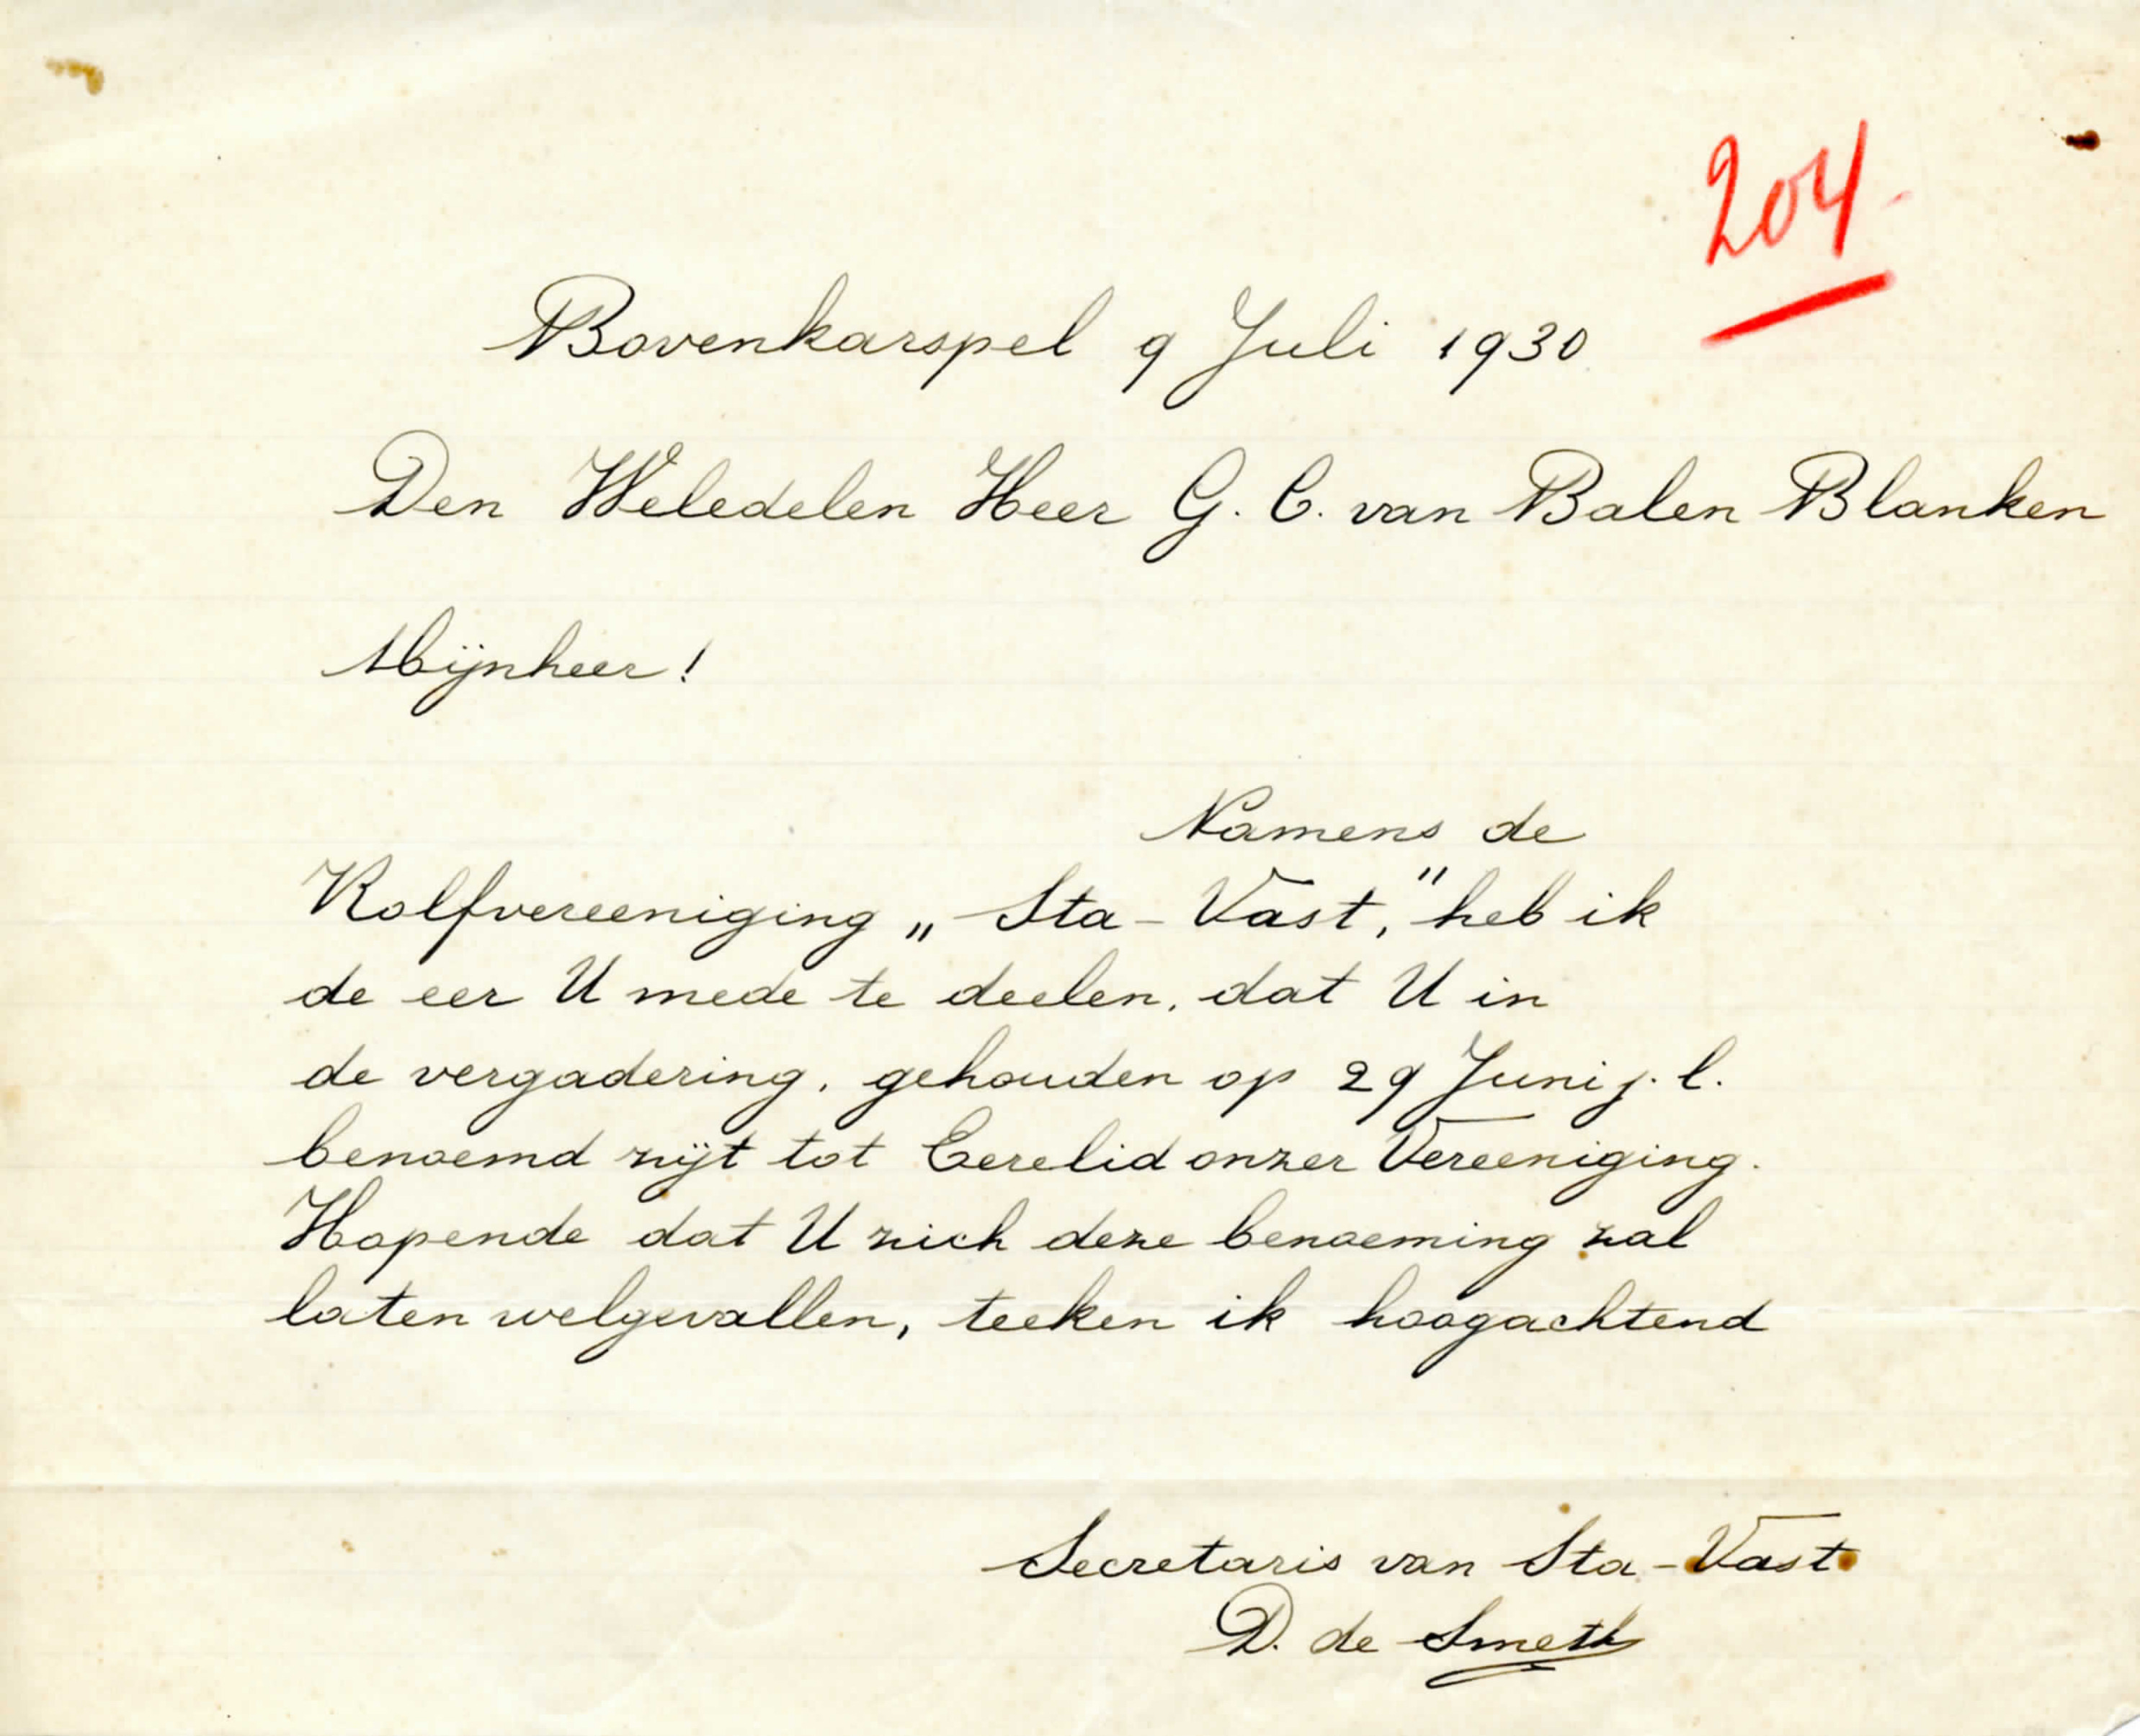 204.
Bovenkarspel 9 Juli 1930
Den Weledelen Heer G. C. van Balen Blanken
Mijnheer!
Namens de
Kolfvereeniging „Sta-Vast,” heb ik
de eer U mede te deelen, dat U in
de vergadering, gehouden op 29 Juni j.l.
benoemd zijt tot Eerelid onzer Vereeniging.
Hopende dat U zich deze benoeming zal
laten welgevallen, teeken ik hoogachtend
Secretaris van Sta-Vast
D. de Smeth